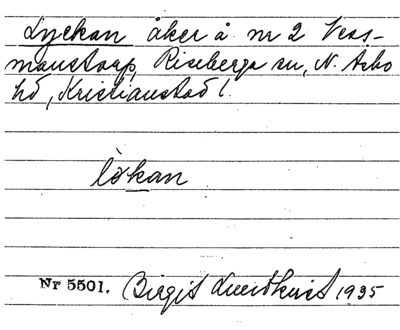 Lyckan åker å nr 2 Vess-
manstorp, Riseberga sn, N. Asbo
hd, Kristianstad l.
lökan
Nr 5501. Birgit Lundkvist 1935